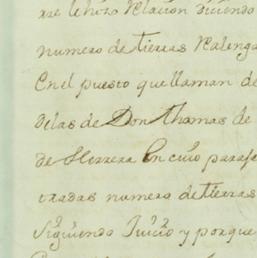 rre le hizo Relacion diciendo
numero de tierras Realenga
En el puesto que llaman de
delas de Don Thomas de
de Herrera En cuio paraje
tradas numero de tierras
Siguiendo Juicio y porque